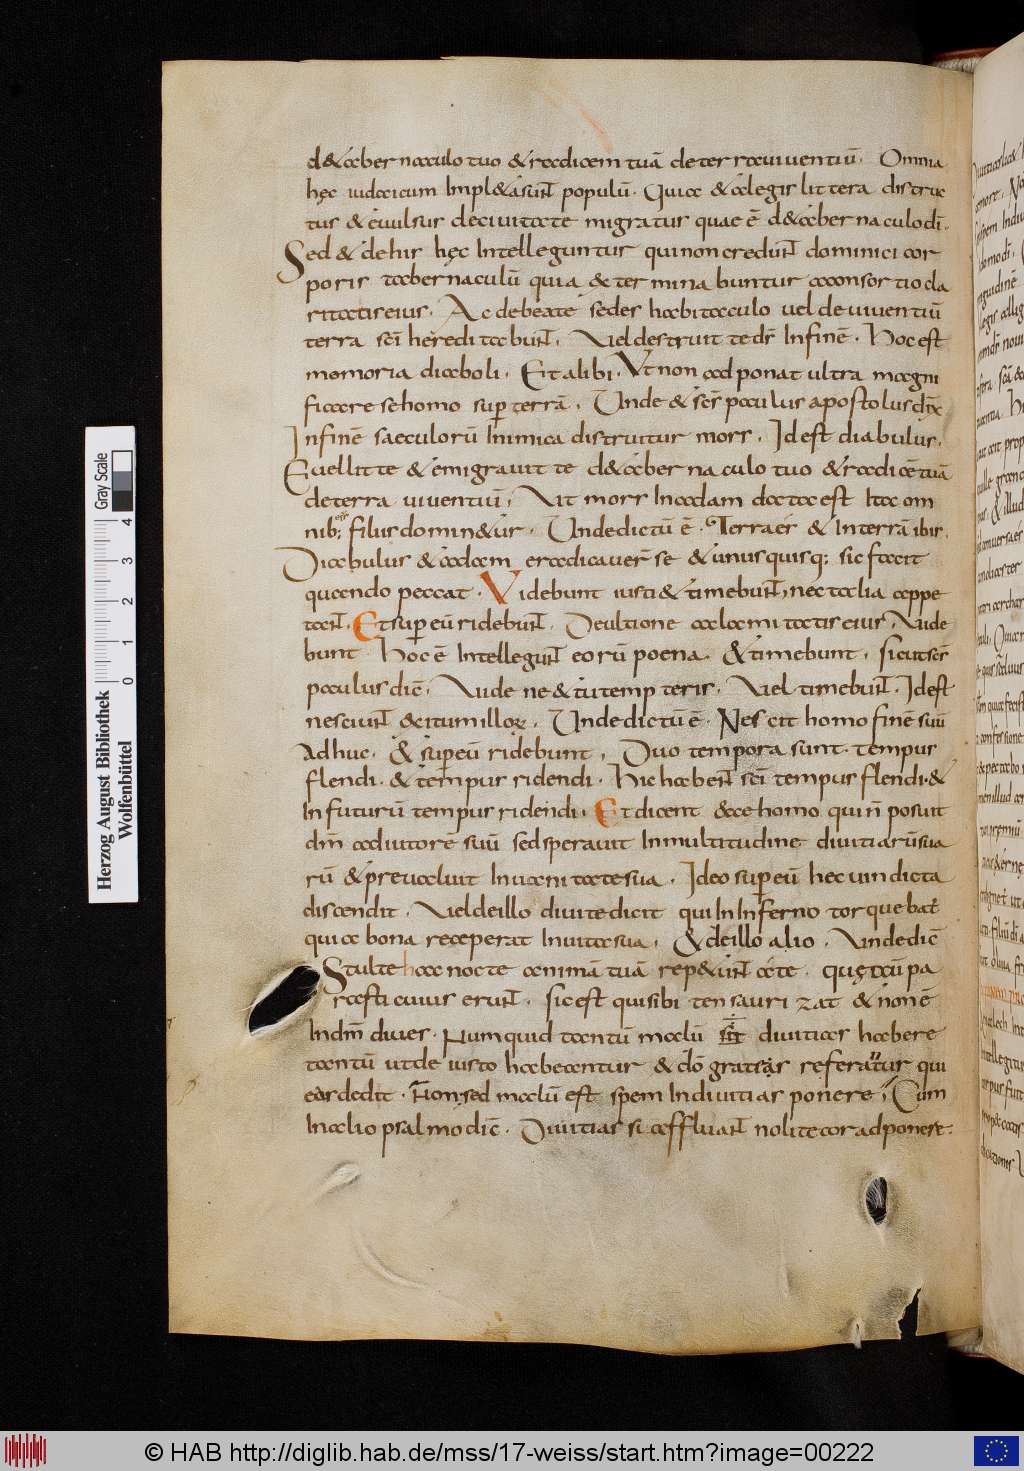 d&aber naculo tuo & radicem tuā deterra uiuentiū. Omnia
hęc iudaicum Impl&a sunt populū. Quia & a legis littera distruc
tus & euulsus deciuitate migratus quae ē d&abernaculo dī.
Sed & de his hęc Intelleguntur qui non credunt dominici cor
poris tabernaculū quia & terminabuntur a consortio cla
ritatis eius. Ac de beatę sedes habitaculo uel de uiuentiū
terra sc̄i hereditabunt. Uel destruit te ds̄ Infinē. Hoc est
memoria diaboli. Et alibi. Ut non adponat ultra magni
ficare se homo super terrā. Unde & sc̄s paulus apostolus dix̄
Infinē saeculorū Inimica distruitur mors. Id est diabulus.
Euellit te & emigrauit te d&abernaculo tuo & radicē tuā
deterra uiuentiū. Ait mors In adam data est Ita om
nib; eius filiis domin&ur. Unde dictū ē. Terra es & In terrā ibis.
Diabulus & adam eradicauer̄ se & unusquisq; sic facit
quando peccat. Videbunt iusti & timebunt, nec talia appe
tant. Et super eū ridebunt. De ultione aalamitatis eius. Uide
bunt. Hoc ē Intellegunt eorū poena. & timebunt. sicut sc̄s
paulus dic̄. Uide ne & tu temp teris. Uel timebunt. Id est
nesciunt &citum illoꝝ. Unde dictū ē. Nescit homo finē suū
Adhuc. & super eū ridebunt. Duo tempora sunt. tempus
flendi. & tempus ridendi. Hic habent sc̄i tempus flendi. &
In futurū tempus ridendi. Et dicent &cce homo qui n̄ posuit
dm̄ adiutorē suū sed sperauit In multitudine diuitiarū sua
rū & preualuit In uanitate sua. Ideo super eū hec uindicta
discendit. Uel de illo diuite dicit qui In Inferno torquebat̄
qui a bona receperat In uita sua. & de illo alio. Unde dic̄
Stulte hac nocte animā tuā rep&unt a te. quę tecū pa
rasti cuius erunt. sic est qui sibi tensaurizat & non ē
In dm̄ diues. Numquid tantū malū est diuitias habere
tantū ut de iusto habeantur & dō gratias referatur qui
eas dedit. Non, sed malū est spem In diuitias ponere. Cum
In alio psalmo dic̄. Diuitias si affluant nolite cor adponere.
Herzog August Bibliothek
Wolfenbüttel
Gray Scale
0 1 2 3 4
© HAB http://diglib.hab.de/mss/17-weiss/start.htm?image=00222